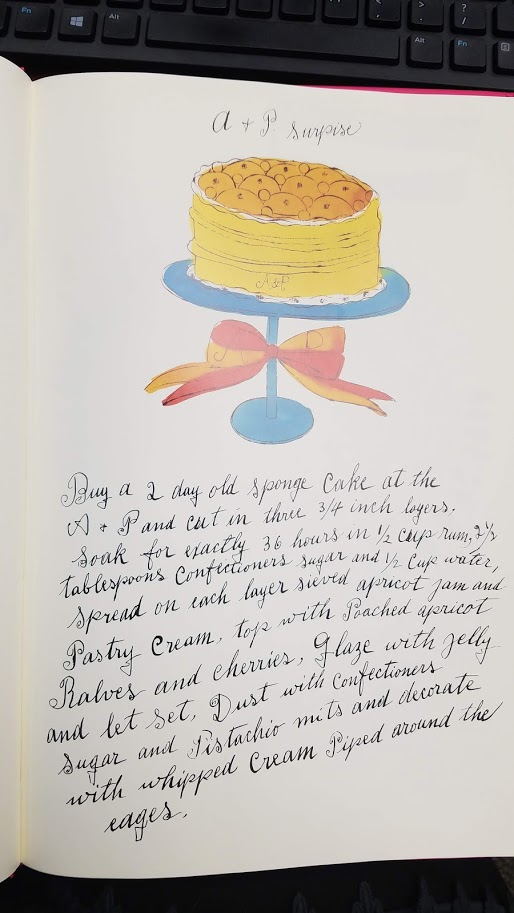 Fn
Alt
Fn
A + P. Surpise
A & P
Buy a 2 day old sponge Cake at the
A + P and cut in three 3/4 inch layers.
Soak for exactly 36 hours in 1/2 cup rum, 2 1/2
tablespoons Confectioners sugar and 1/2 Cup water,
Spread on each layer sieved apricot jam and
Pastry Cream, top with Poached apricot
Halves and cherries, Glaze with jelly
and let set, Dust with Confectioners
sugar and Pistachio nuts and decorate
with whipped Cream Piped around the
edges.